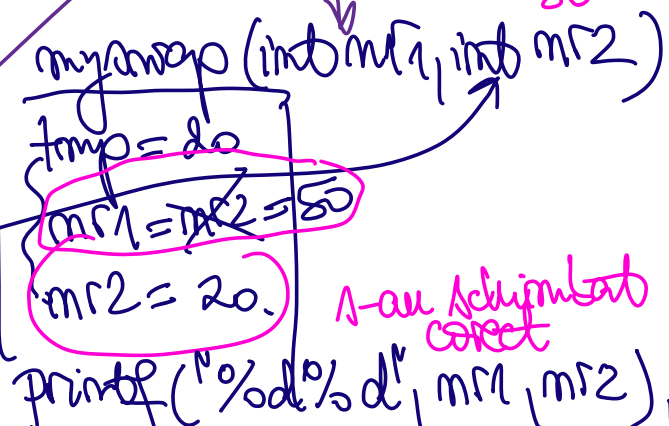 myswap (int nr1, int nr2)
tmp = 20
nr1 = nr2 = 50
nr2 = 20.
s-au schimbat
corect
printf("%d%d", nr1, nr2)